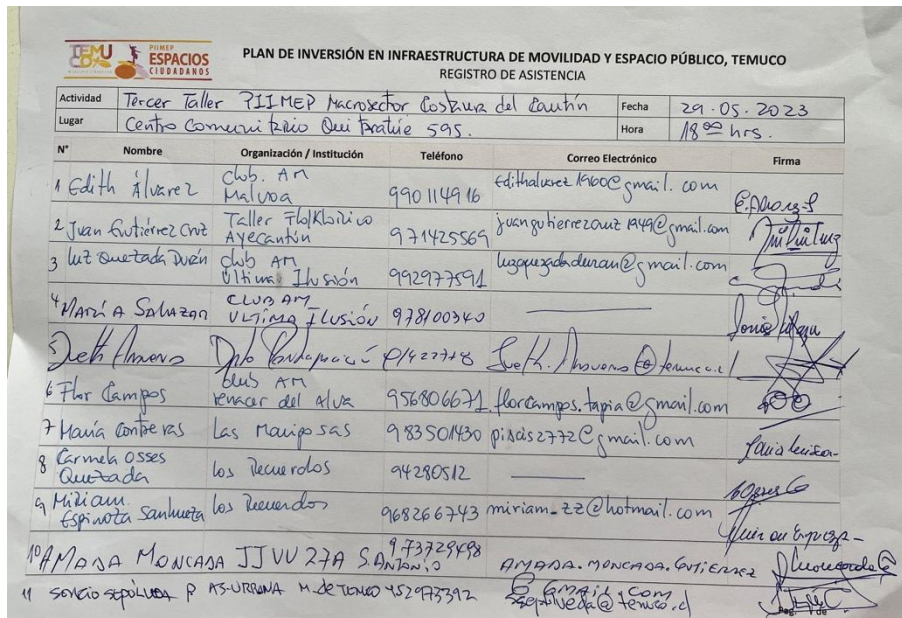 TEMUCO
PIIMEP
ESPACIOS
CIUDADANOS
PLAN DE INVERSIÓN EN INFRAESTRUCTURA DE MOVILIDAD Y ESPACIO PÚBLICO, TEMUCO
REGISTRO DE ASISTENCIA
Actividad Tercer Taller PIIMEP Macrosector Costanera del Cautín Fecha 29.05.2023
Lugar Centro Comunitario 595. Hora 18:00 hrs.
N° Nombre Organización / Institución Teléfono Correo Electrónico Firma
1 Edith Álvarez Club. AM Malvoa 990114916 @gmail.com
2 Juan Gutiérrez Cruz Taller Ayecantún 971425569 @gmail.com
3 Luz Quezada Durán Club AM Última Ilusión 992977591 luzquezadaduran@gmail.com
4 María Salazar CLUB AM ULTIMA ILUSIÓN 978100340
5
6 Flor Campos Club AM renacer del alva 956806671 florcampos.tapia@gmail.com
7 María Contreras Las Mariposas 983501430 piscis2772@gmail.com
8 Carmela Osses Quezada Los Recuerdos 94280512
9 Miriam Espinoza Sanhueza Los Recuerdos 968266743 miriam_zz@hotmail.com
10 AMADA MONCADA JJVV 27A S. ANTONIO 973729498 AMADA.MONCADA.GUTIERREZ @GMAIL.COM
11 SERGIO SEPÚLVEDA P AS-URBANA M. de TEMUCO 452973392 @temuco.cl